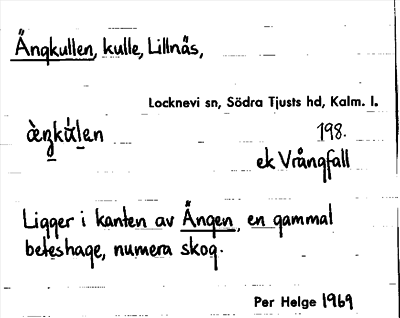 Ängkullen, kulle, Lillnäs,
Locknevi sn, Södra Tjusts hd, Kalm. l.
198.
ek Vrångfall
Ligger i kanten av Ängen, en gammal
beteshage, numera skog.
Per Helge 1969